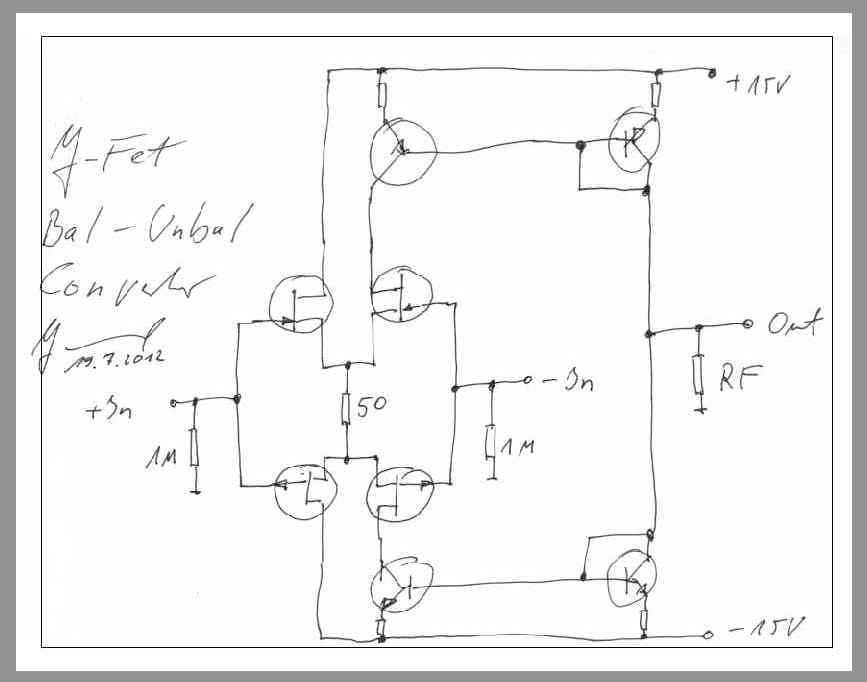 J-Fet
Bal-Unbal
Converter
19.7.2012
+15V
Out
RF
+In
-In
50
1M
1M
-15V